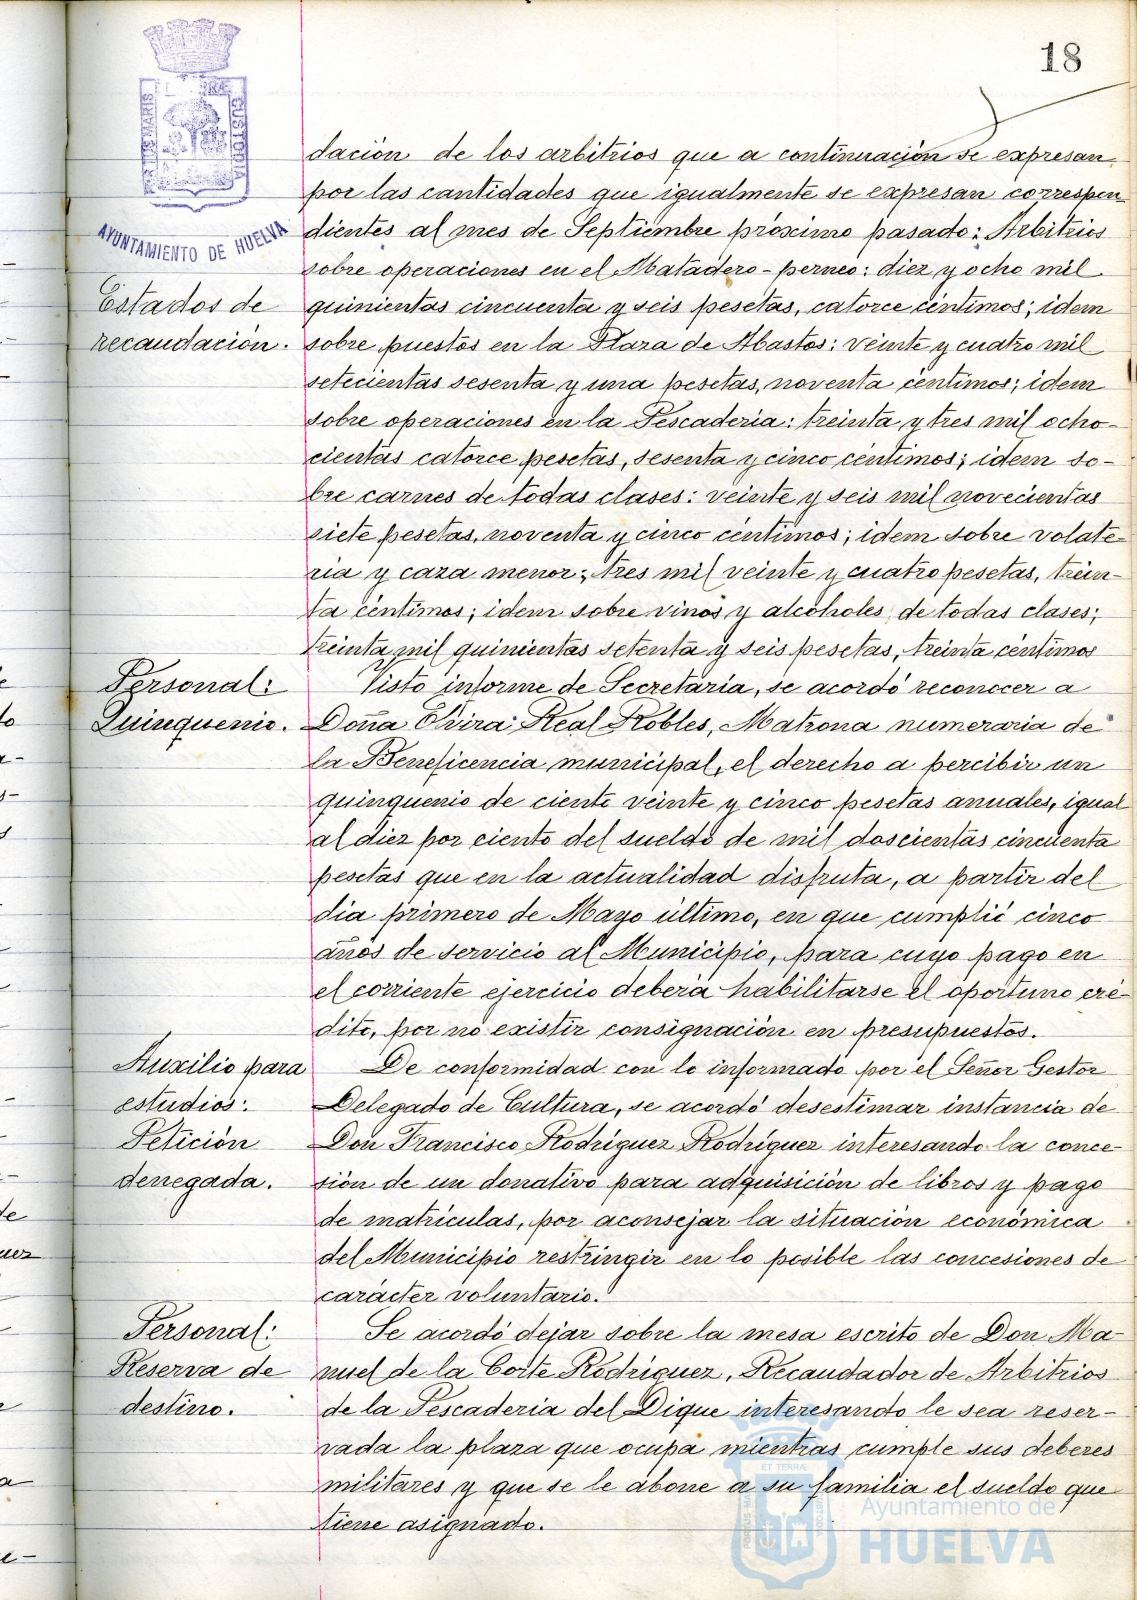 18
AYUNTAMIENTO DE HUELVA
dación de los arbitrios que a continuación se expresan
por las cantidades que igualmente se expresan correspon
dientes al mes de Septiembre próximo pasado: Arbitrios
sobre operaciones en el Matadero-perneo: diez y ocho mil
Estados de
recaudación.
quinientas cincuenta y seis pesetas, catorce céntimos; idem
sobre puestos en la Plaza de Abastos: veinte y cuatro mil
setecientas sesenta y una pesetas, noventa céntimos; idem
sobre operaciones en la Pescaderia: treinta y tres mil ocho-
cientas catorce pesetas, sesenta y cinco céntimos; idem so-
bre carnes de todas clases: veinte y seis mil novecientas
siete pesetas, noventa y cinco céntimos; idem sobre volate-
ria y caza menor: tres mil veinte y cuatro pesetas, trein-
ta céntimos; idem sobre vinos y alcoholes de todas clases;
treinta mil quinientas setenta y seis pesetas, treinta céntimos
Personal:
Quinquenio.
Visto informe de Secretaría, se acordó reconocer a
Doña Elvira Real Robles, Matrona numeraria de
la Beneficencia municipal, el derecho a percibir un
quinquenio de ciento veinte y cinco pesetas anuales, igual
al diez por ciento del sueldo de mil doscientas cincuenta
pesetas que en la actualidad disfruta, a partir del
dia primero de Mayo último, en que cumplió cinco
años de servicio al Municipio, para cuyo pago en
el corriente ejercicio deberá habilitarse el oportuno cré-
dito, por no existir consignación en presupuestos.
Auxilio para
estudios:
Petición
denegada.
De conformidad con lo informado por el Señor Gestor
Delegado de Cultura, se acordó desestimar instancia de
Don Francisco Rodríguez Rodríguez interesando la conce-
sión de un donativo para adquisición de libros y pago
de matrículas, por aconsejar la situación económica
del Municipio restringir en lo posible las concesiones de
carácter voluntario.
Personal:
Reserva de
destino.
Se acordó dejar sobre la mesa escrito de Don Ma-
nuel de la Corte Rodríguez, Recaudador de Arbitrios
de la Pescaderia del Dique interesando le sea reser-
vada la plaza que ocupa mientras cumple sus deberes
militares y que se le abone a su familia el sueldo que
tiene asignado.
Ayuntamiento de
HUELVA